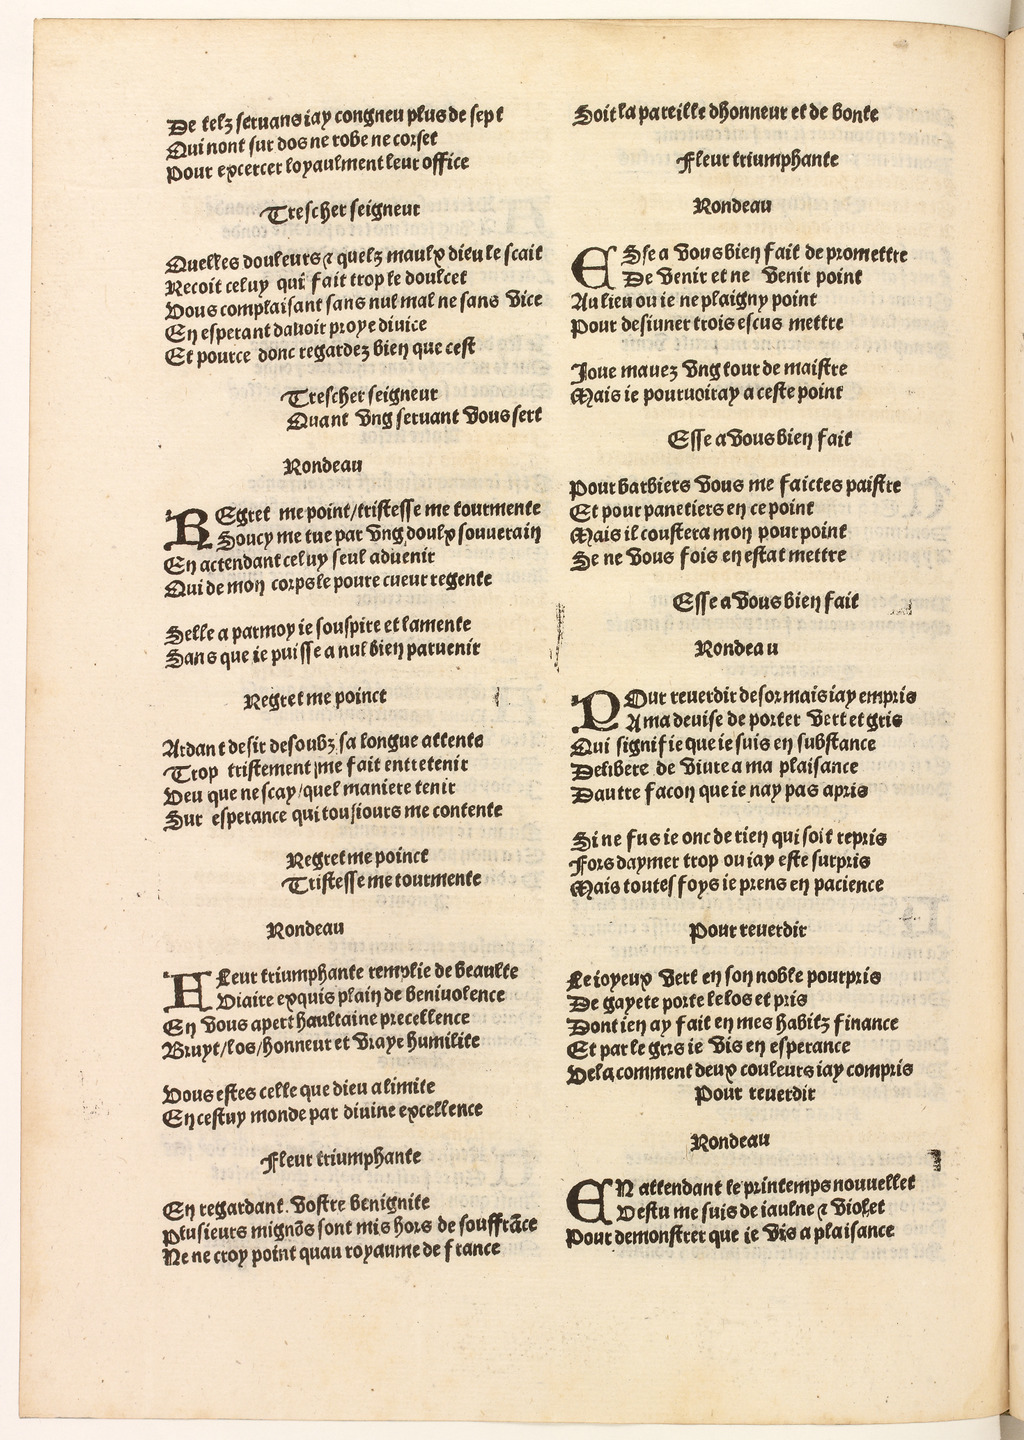 De telz seruans iay congneu plus de sept
Qui nont sur dos ne robe ne corset
Pour excercer loyaulment leur office
Trescher seigneur
Quelles douleurs ⁊ quelz maulx dieu le scait
Recoit celuy qui fait trop le doulcet
Vous complaisant sans nul mal ne sans vice
En esperant dauoir proye diuice
Et pource donc regardez bien que cest
Trescher seigneur
Quant vng seruant vous sert
Rondeau
REgret me point/tristesse me tourmente
Soucy me tue par vng doulx souuerain
En actendant celuy seul aduenir
Qui de mon corps le poure cueur regente
Selle a parmoy ie souspire et lamente
Sans que ie puisse a nul bien paruenir
Regret me poinct
Ardant desir desoubz sa longue attente
Trop tristement me fait entretenir
Veu que ne scay/quel maniere tenir
Sur esperance qui tousiours me contente
Regret me poinct
Tristesse me tourmente
Rondeau
FLeur triumphante remplie de beaulte
Viaire exquis plain de beniuolence
En vous apert haultaine precellence
Bruyt/los/honneur et vraye humilite
Vous estes celle que dieu a limite
En cestuy monde par diuine excellence
Fleur triumphante
En regardant. vostre benignite
Plusieurs mignõs sont mis hors de souffrãce
Ne ne croy point quau royaume de france
Soit la pareille dhonneur et de bonte
Fleur triumphante
Rondeau
ESse a vous bien fait de promettre
De venir et ne venir point
Au lieu ou ie ne plaigny point
Pour desiuner trois escus mettre
Ioue mauez vng tour de maistre
Mais ie pouruoiray a ceste point
Esse a vous bien fait
Pour barbiers vous me faictes paistre
Et pour panetiers en ce point
Mais il coustera mon pourpoint
Se ne vous fois en estat mettre
Esse a vous bien fait
Rondeau
POur reuerdir desormais iay empris
A ma deuise de porter vert et gris
Qui signifie que ie suis en substance
Delibere de viure a ma plaisance
Dautre facon que ie nay pas apris
Si ne fus ie onc de rien qui soit repris
Fors daymer trop ou iay este surpris
Mais toutesfoys ie prens en pacience
Pour reuerdir
Le ioyeux vert en son noble pourpris
De gayete porte le los et pris
Dont ien ay fait en mes habitz finance
Et par le gris ie vis en esperance
Vela comment deux couleurs iay compris
Pour reuerdir
Rondeau
EN attendant le printemps nouuellet
Vestu me suis de iaulne ⁊ violet
Pour demonstrer que ie vis a plaisance